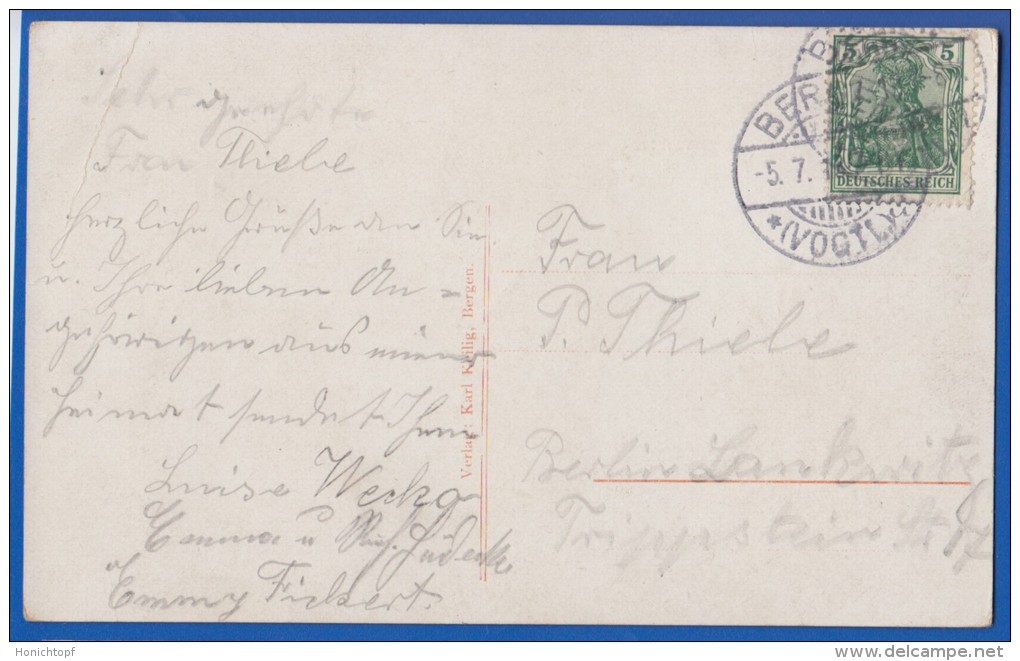 Sehr geehrte
Frau Thiele
herzliche Grüße an Sie
u. Ihre lieben An-
gehörigen aus meiner
Heimat sendet Ihnen
Luise
Emma u
Emmy Fickert.
Verlag: Karl Keilig, Bergen.
Frau
P. Thiele
Berlin Lankwitz
Trippstein Str.
5 5
DEUTSCHES REICH
BERGEN
-5. 7. 1
*(VOGTL)
Honichtopf
www.delcampe.net